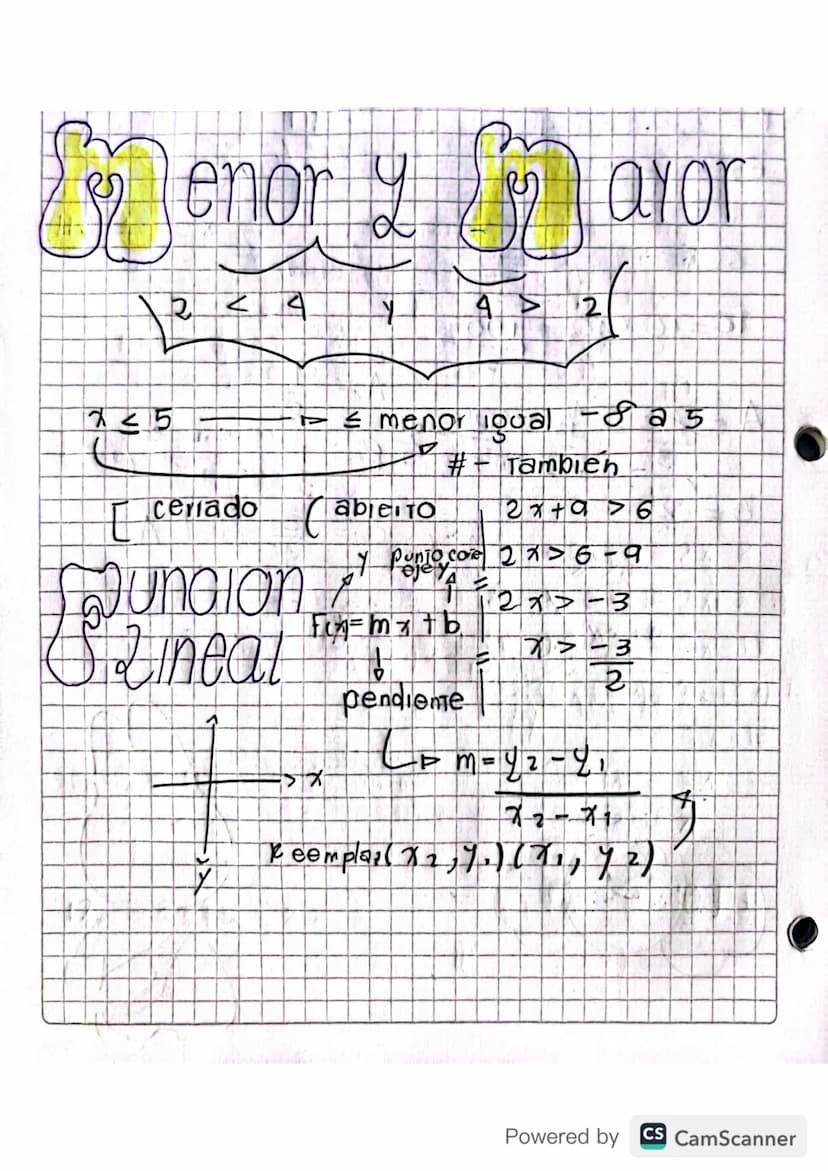 Menor y Mayor
2 < 4 y 4 > 2
x ≤ 5 → ≤ menor igual -8 a 5
# - También
[ cerrado ( abierto
2x+9 > 6
2x > 6-9
2x > -3
x > -3
2
Función
Lineal
y Punto corte
eje y
F(x)=mx+b
pendiente
m=y2-y1
x2-x1
x
y
Reemplaz(x2,y1)(x1,y2)
Powered by CS CamScanner